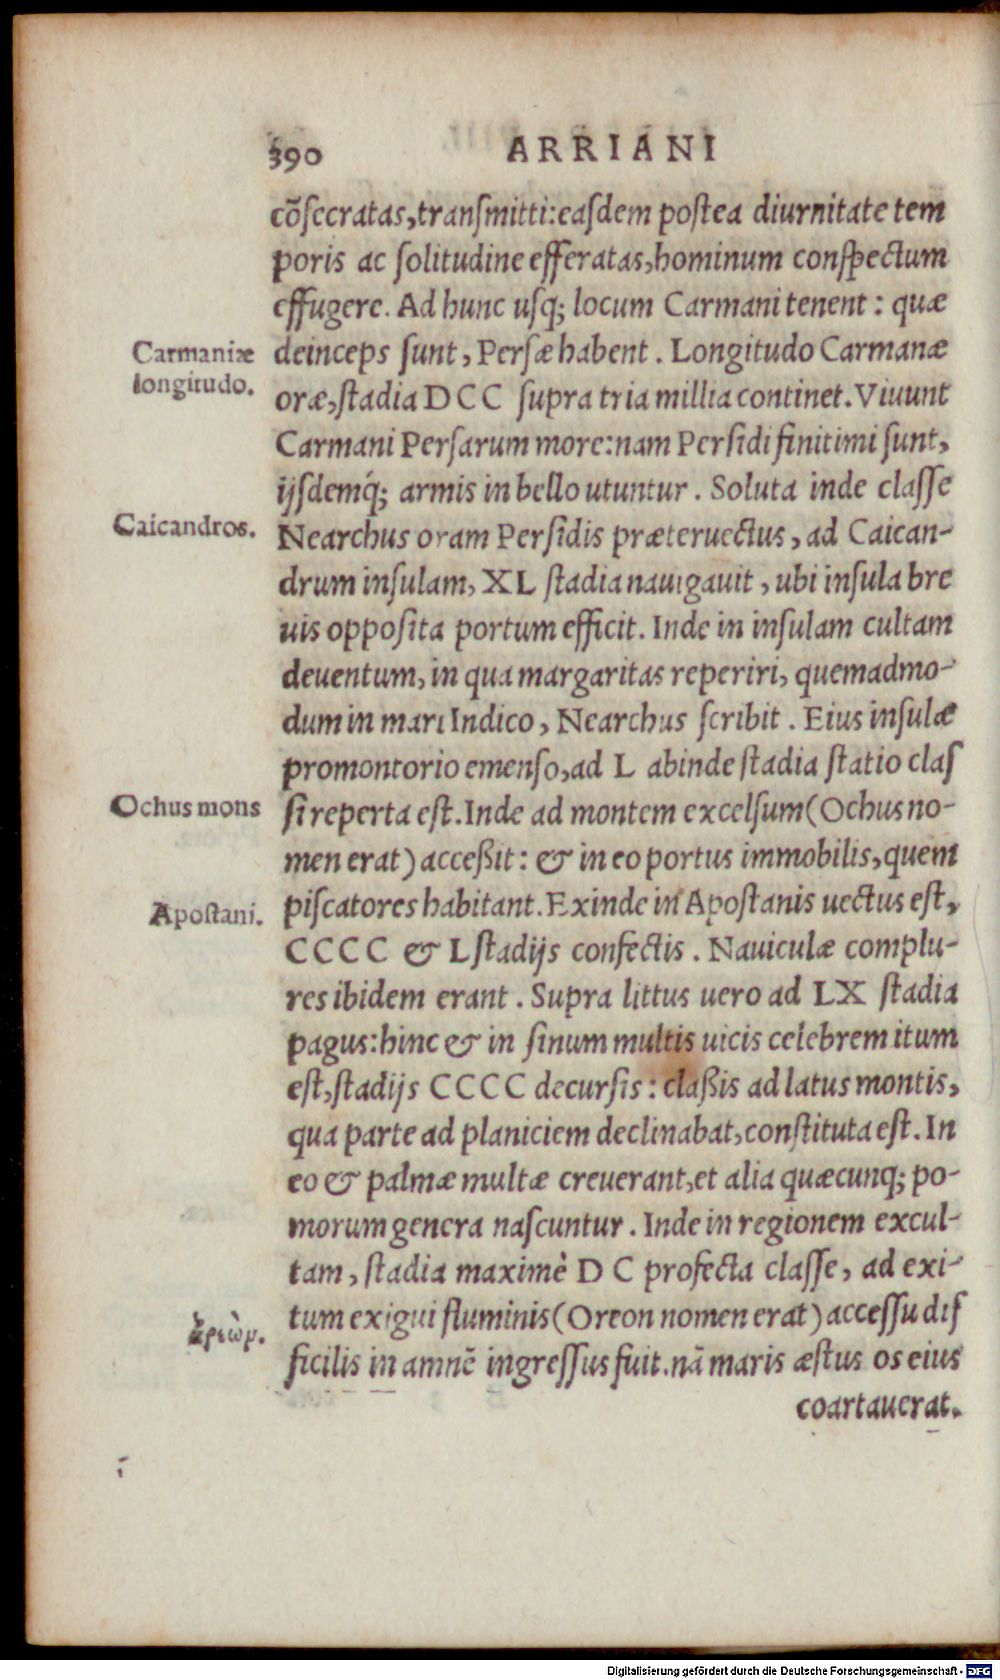 390 ARRIANI
cõſecratas,tranſmitti:eaſdem poſtea diurnitate tem
poris ac ſolitudine efferatas,hominum conſpectum
effugere. Ad hunc uſq; locum Carmani tenent : quæ
Carmaniæ
longitudo.
deinceps ſunt, Perſæ habent. Longitudo Carmanæ
oræ,ſtadia DCC ſupra tria millia continet. Viuunt
Carmani Perſarum more:nam Perſidi finitimi ſunt,
ijſdemq́; armis in bello utuntur. Soluta inde claſſe
Caicandros.
Nearchus oram Perſidis præteruectus, ad Caican-
drum inſulam, XL ſtadia nauigauit, ubi inſula bre
uis oppoſita portum efficit. Inde in inſulam cultam
deuentum, in qua margaritas reperiri, quemadmo-
dum in mari Indico, Nearchus ſcribit. Eius inſulæ
promontorio emenſo,ad L abinde ſtadia ſtatio claſ
Ochus mons
ſi reperta eſt. Inde ad montem excelſum (Ochus no-
men erat) acceßit: & in eo portus immobilis,quem
Apoſtani.
piſcatores habitant. Exinde in Apoſtanis uectus eſt,
CCCC & L ſtadijs confectis. Nauiculæ complu-
res ibidem erant. Supra littus uero ad LX ſtadia
pagus:hinc & in ſinum multis uicis celebrem itum
eſt,ſtadijs CCCC decurſis: claßis ad latus montis,
qua parte ad planiciem declinabat,conſtituta eſt. In
eo & palmæ multæ creuerant,et alia quæcunq; po-
morum genera naſcuntur. Inde in regionem excul-
tam, ſtadia maximè DC profecta claſſe, ad exi-
tum exigui fluminis (Oreon nomen erat) acceſſu diſ
ficilis in amnē ingreſſus fuit.nā maris æſtus os eius
coartauerat.
Digitalisierung gefördert durch die Deutsche Forschungsgemeinschaft - DFG